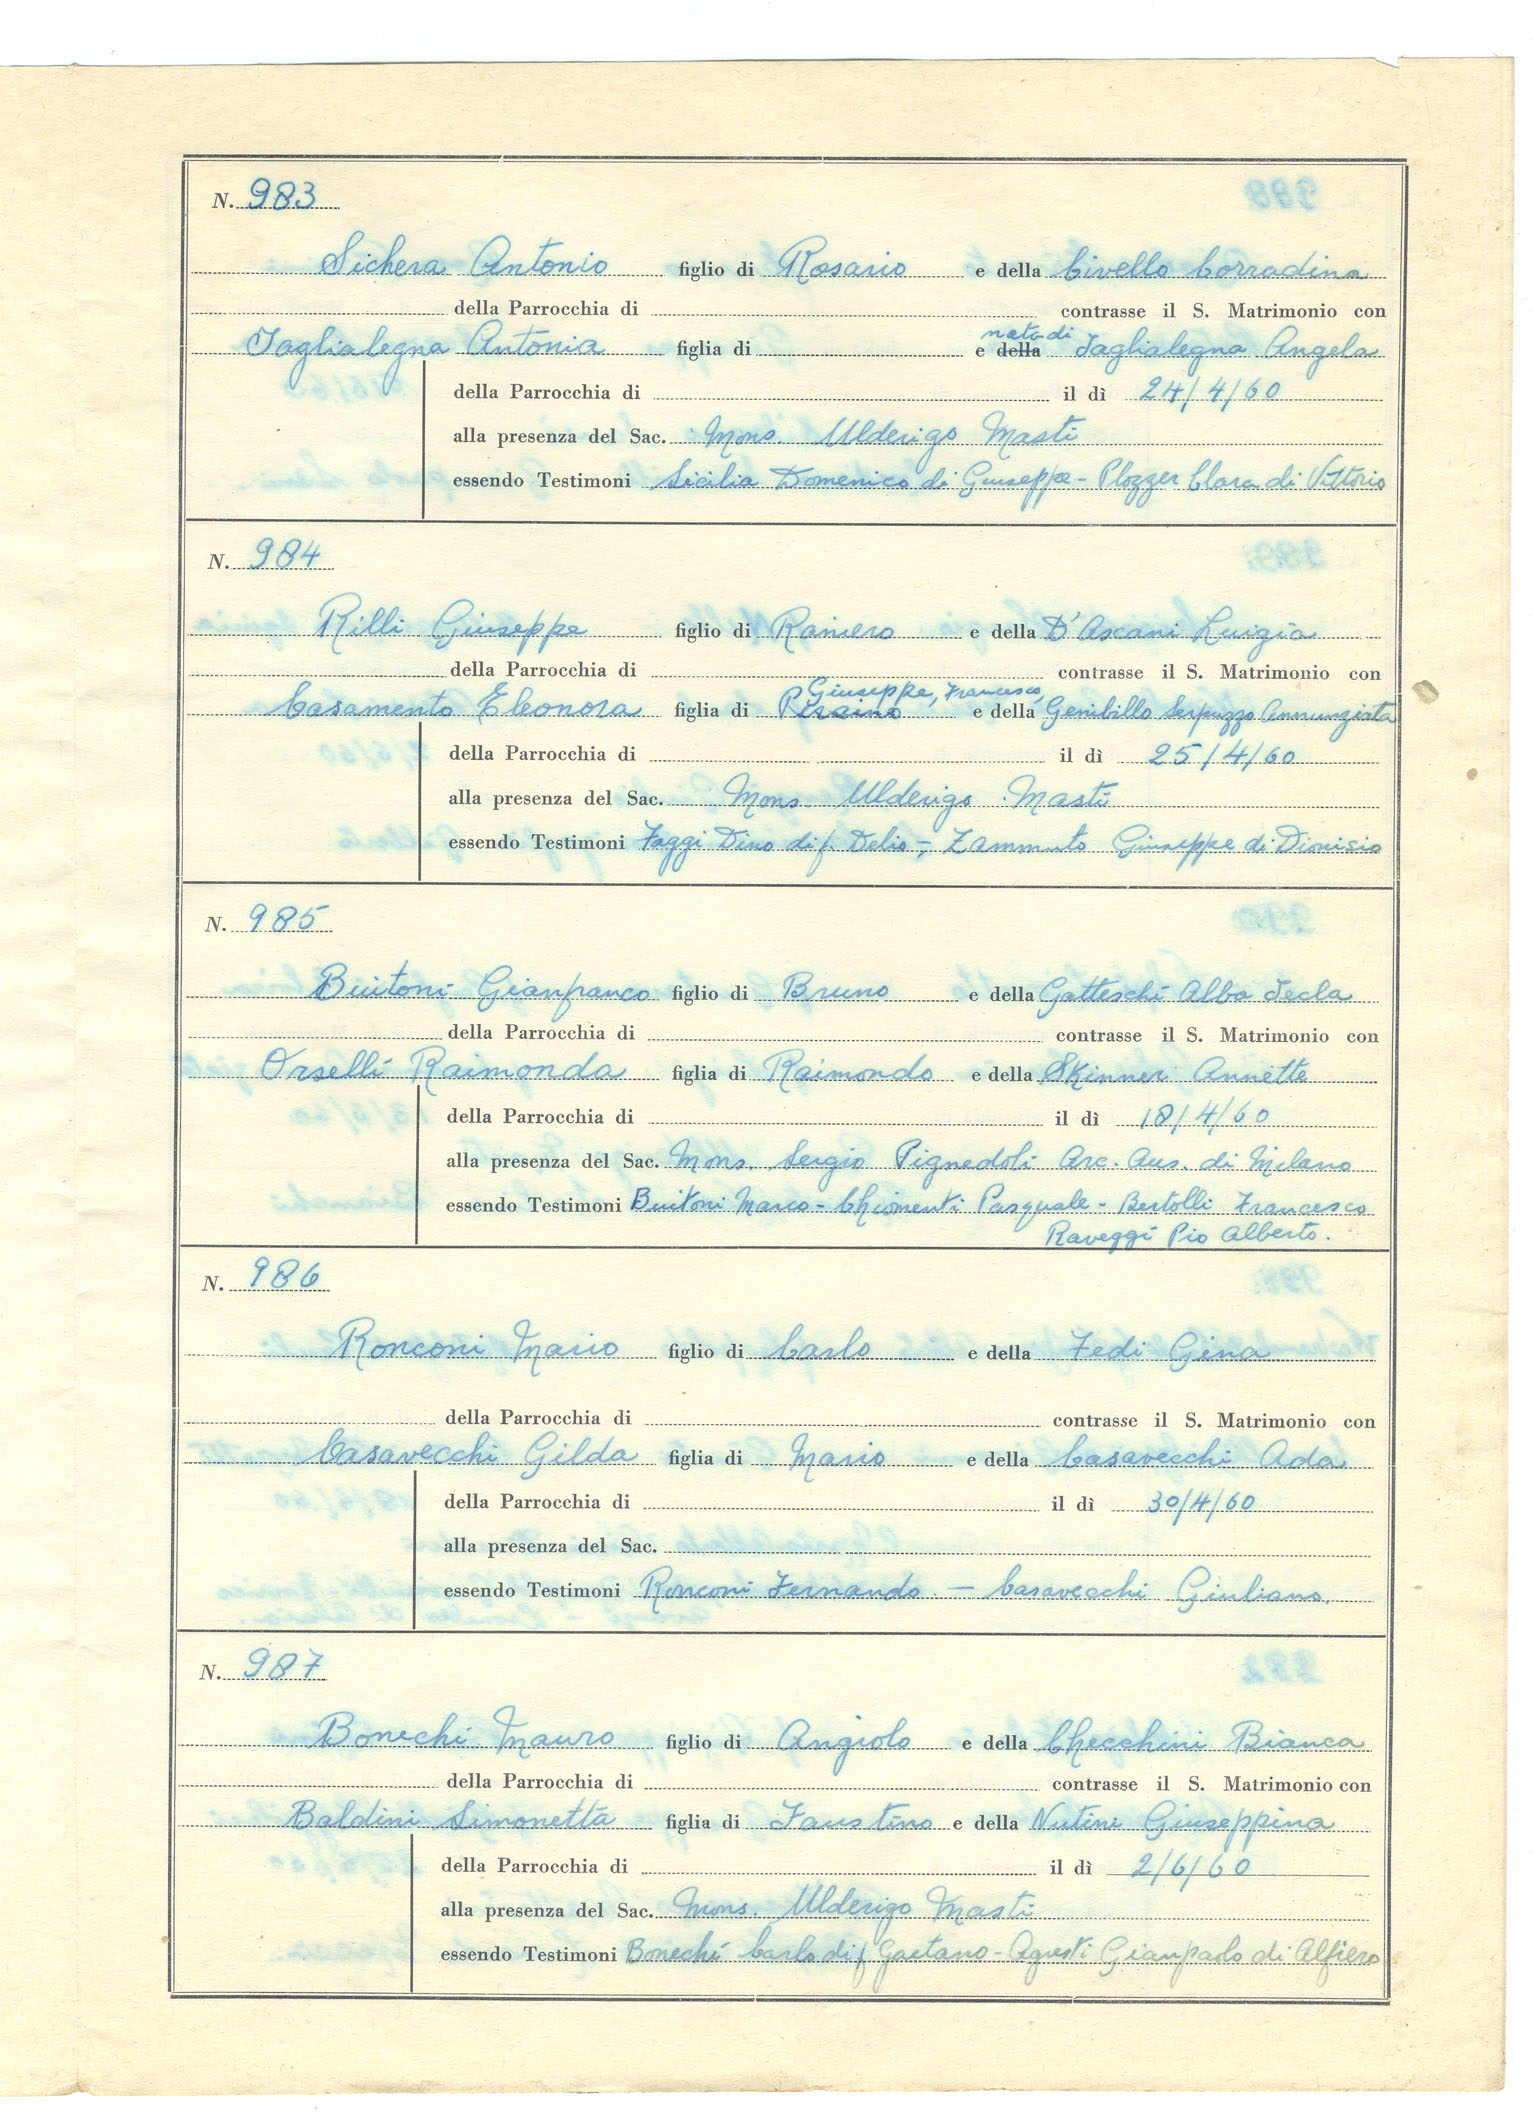 N. 983
Sichera Antonio figlio di Rosario e della Civello Corradina
della Parrocchia di contrasse il S. Matrimonio con
nata di
Taglialegna Antonia figlia di e della Taglialegna Angela
della Parrocchia di il dì 24/4/60
alla presenza del Sac. Mons. Ulderigo Masti
essendo Testimoni Sicilia Domenico di Giuseppe - Plozzer Clara di Vittorio
N. 984
Rilli Giuseppe figlio di Raniero e della D'Ascani Luigia
della Parrocchia di contrasse il S. Matrimonio con
Giuseppe, Francesco,
Casamento Eleonora figlia di Peraino e della Genibillo Serpuzzo Annunziata
della Parrocchia di il dì 25/4/60
alla presenza del Sac. Mons. Ulderigo Masti
essendo Testimoni Faggi Dino di f. Delio -, Zammuto Giuseppe di Dionisio
N. 985
Buitoni Gianfranco figlio di Bruno e della Gatteschi Alba Tecla
della Parrocchia di contrasse il S. Matrimonio con
Orselli Raimonda figlia di Raimondo e della Skinner Annette
della Parrocchia di il dì 18/4/60
alla presenza del Sac. Mons. Sergio Pignedoli Arc. Aus. di Milano
essendo Testimoni Buitoni Marco - Chiomenti Pasquale - Bertolli Francesco
Raveggi Pio Alberto.
N. 986
Ronconi Mario figlio di Carlo e della Fedi Gina
della Parrocchia di contrasse il S. Matrimonio con
Casavecchi Gilda figlia di Mario e della Casavecchi Ada
della Parrocchia di il dì 30/4/60
alla presenza del Sac.
essendo Testimoni Ronconi Fernando - Casavecchi Giuliano.
N. 987
Bonechi Mauro figlio di Angiolo e della Checchini Bianca
della Parrocchia di contrasse il S. Matrimonio con
Baldini Simonetta figlia di Faustino e della Nutini Giuseppina
della Parrocchia di il dì 2/6/60
alla presenza del Sac. Mons. Ulderigo Masti
essendo Testimoni Bonechi Carlo di f Gaetano - Agresti Gianpaolo di Alfiero